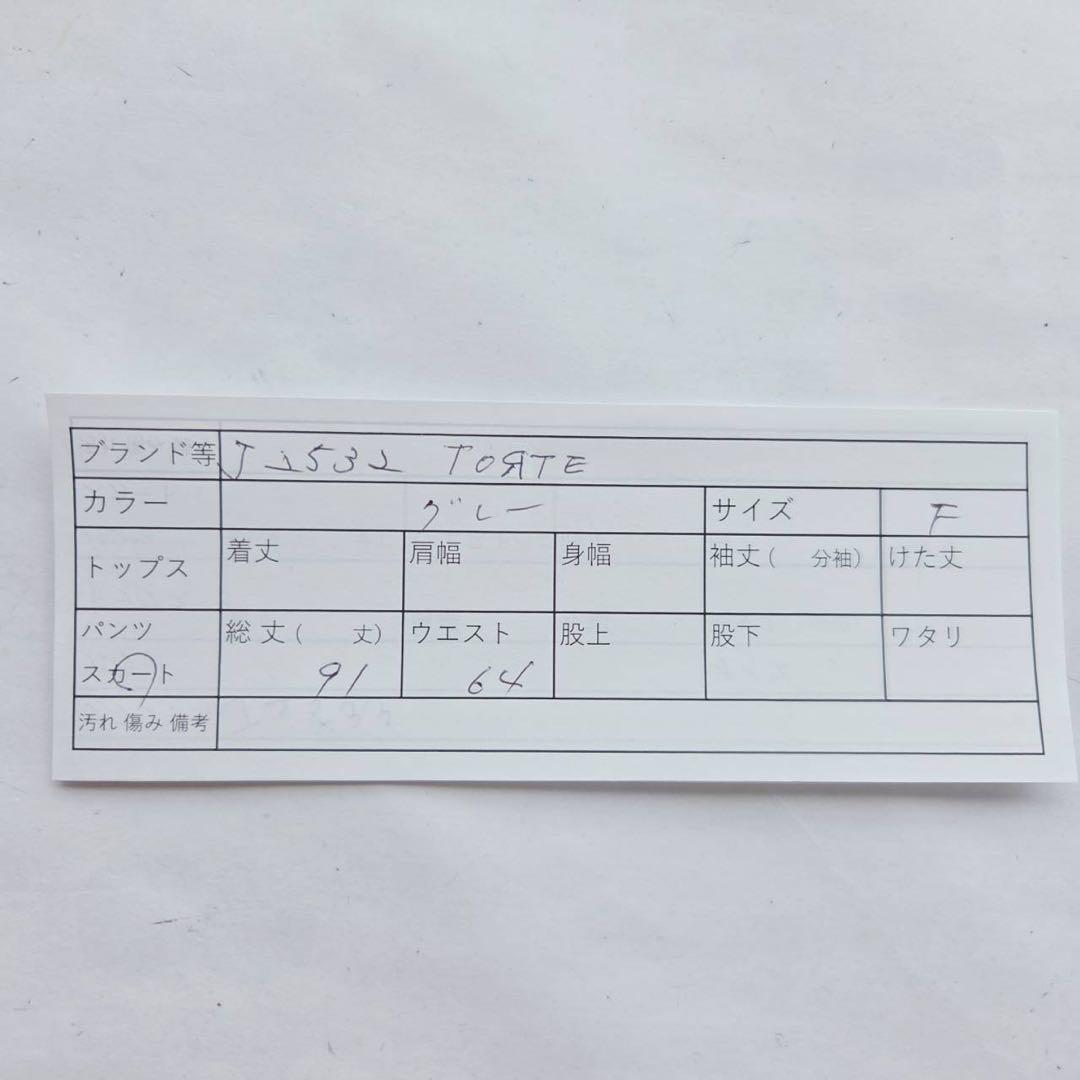 ブランド等 J2532 TOЯTE
カラー グレー サイズ F
トップス 着丈 肩幅 身幅 袖丈( 分袖) けた丈
パンツ 総丈( 丈) ウエスト 股上 股下 ワタリ
スカート 91 64
汚れ 傷み 備考